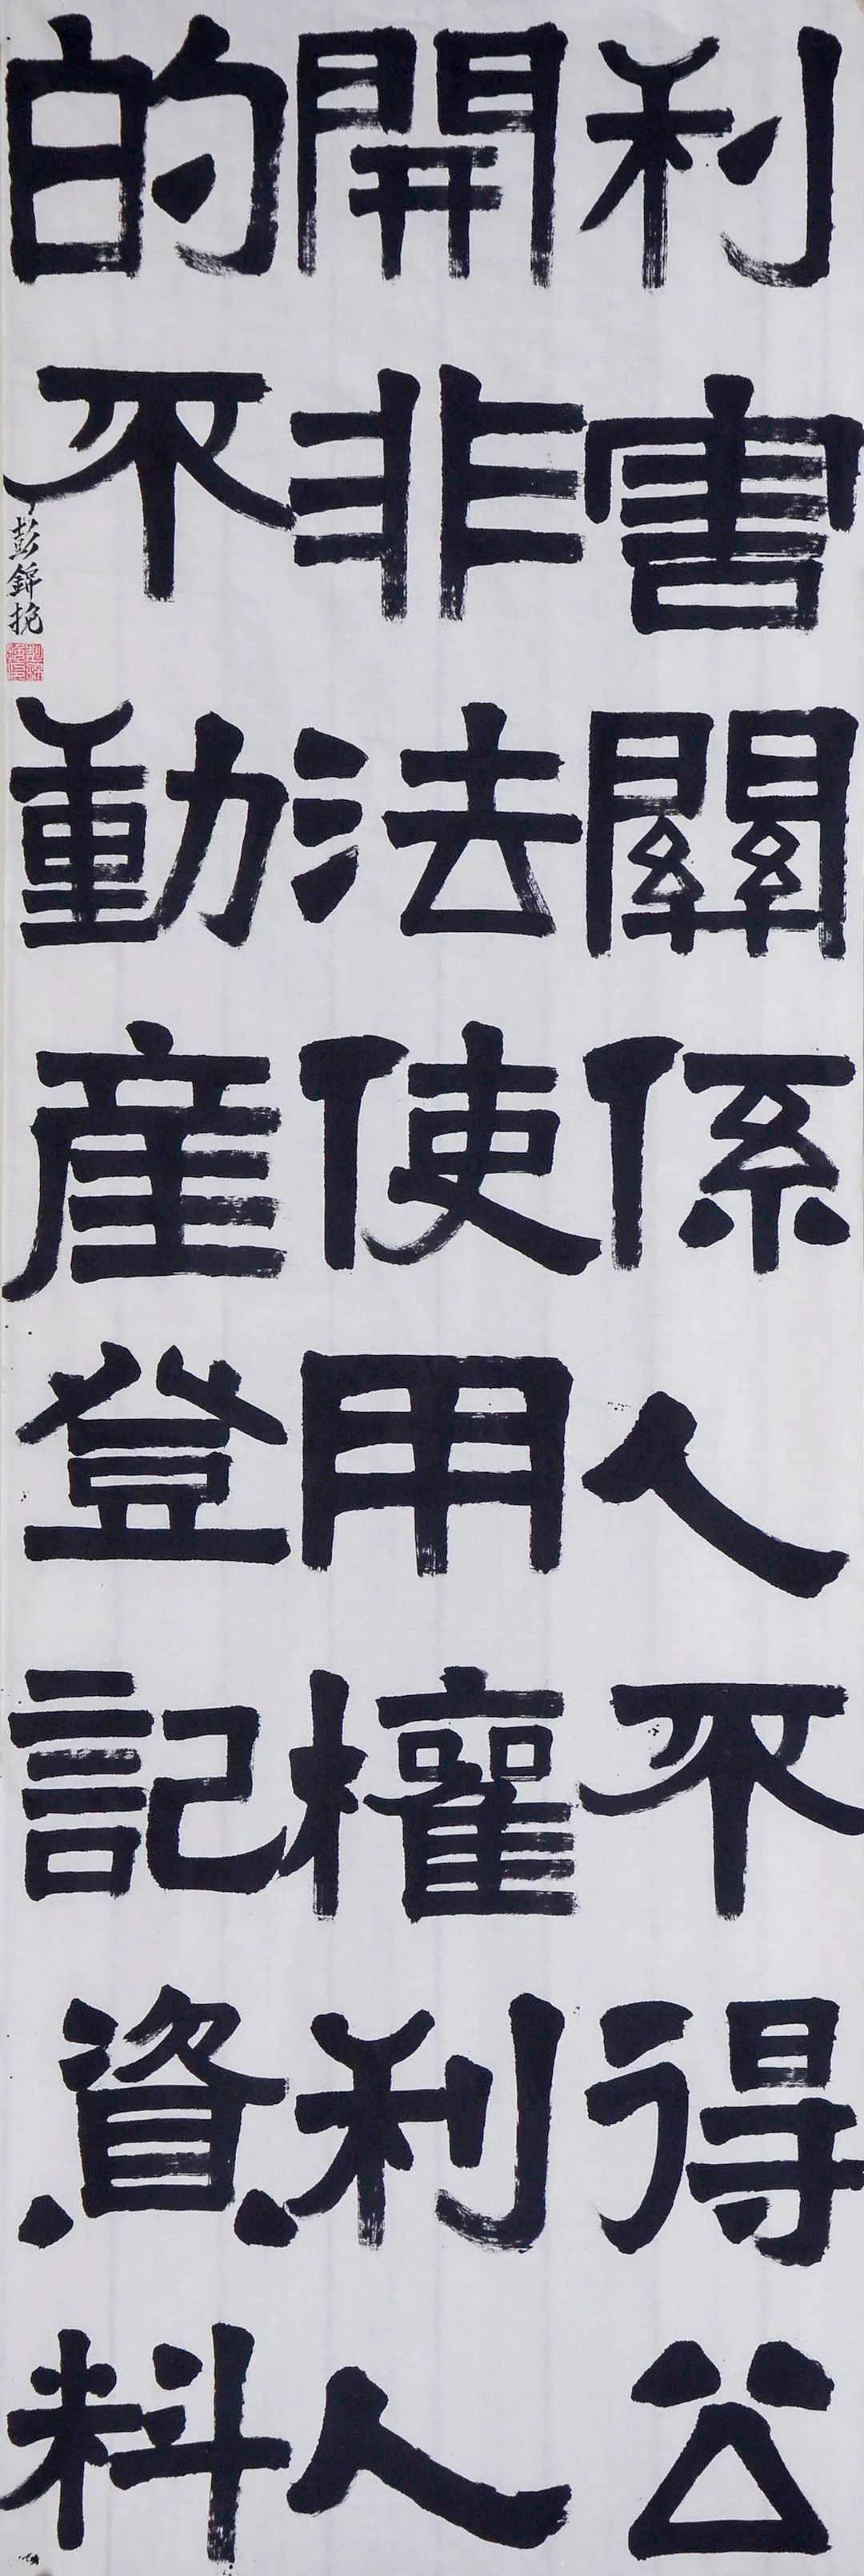 利害關係人不得公
開非法使用權利人
的不動産登記資料
彭錚挽